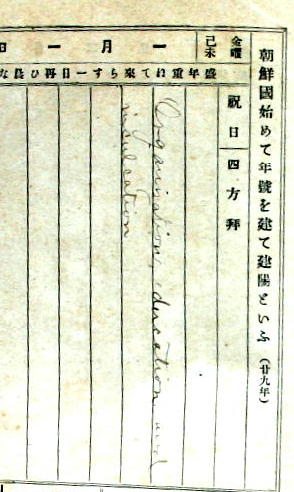 朝鮮國始めて年號を建て建陽といふ（廿九年）
金曜
己未
一月一日
盛年重ねて來らず一日再び晨な
祝日
四方拜
Organization, education and
inculcation